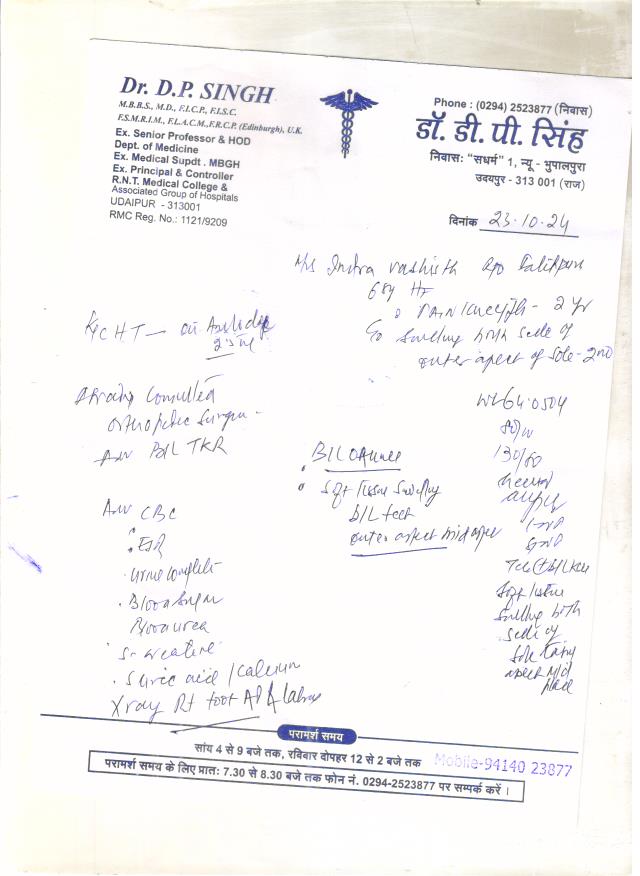 Dr. D.P. SINGH
M.B.B.S., M.D., F.I.C.P., F.I.S.C.
F.S.M.R.I.M., F.L.A.C.M.,F.R.C.P. (Edinburgh), U.K.
Ex. Senior Professor & HOD
Dept. of Medicine
Ex. Medical Supdt . MBGH
Ex. Principal & Controller
R.N.T. Medical College &
Associated Group of Hospitals
UDAIPUR - 313001
RMC Reg. No.: 1121/9209
Phone : (0294) 2523877 (निवास)
डॉ. डी. पी. सिंह
निवासः "सधर्म" 1, न्यू - भुपालपुरा
उदयपुर - 313 001 (राज)
दिनांक 23.10.24
Indra Vashisth
68y
PAIN Knee - 2 yr
Swelling both side of
outer aspect of sole - 2
K/C HT - on
Already Consulted
Orthopedic Surgeon
Adv B/L TKR
Wt 64.05
80/m
130/80
B/L OA knee
Soft Tissue Swelling
B/L feet
outer aspect mid
Soft tissue
Swelling both
side of
sole
aspect mid
Adv CBC
. ESR
. Urine complete
. Blood Sugar
Blood urea
S. creatine
. S uric acid / Calcium
Xray Rt foot AP &
परामर्श समय
सांय 4 से 9 बजे तक, रविवार दोपहर 12 से 2 बजे तक
Mobile-94140 23877
परामर्श समय के लिए प्रातः 7.30 से 8.30 बजे तक फोन नं. 0294-2523877 पर सम्पर्क करें ।